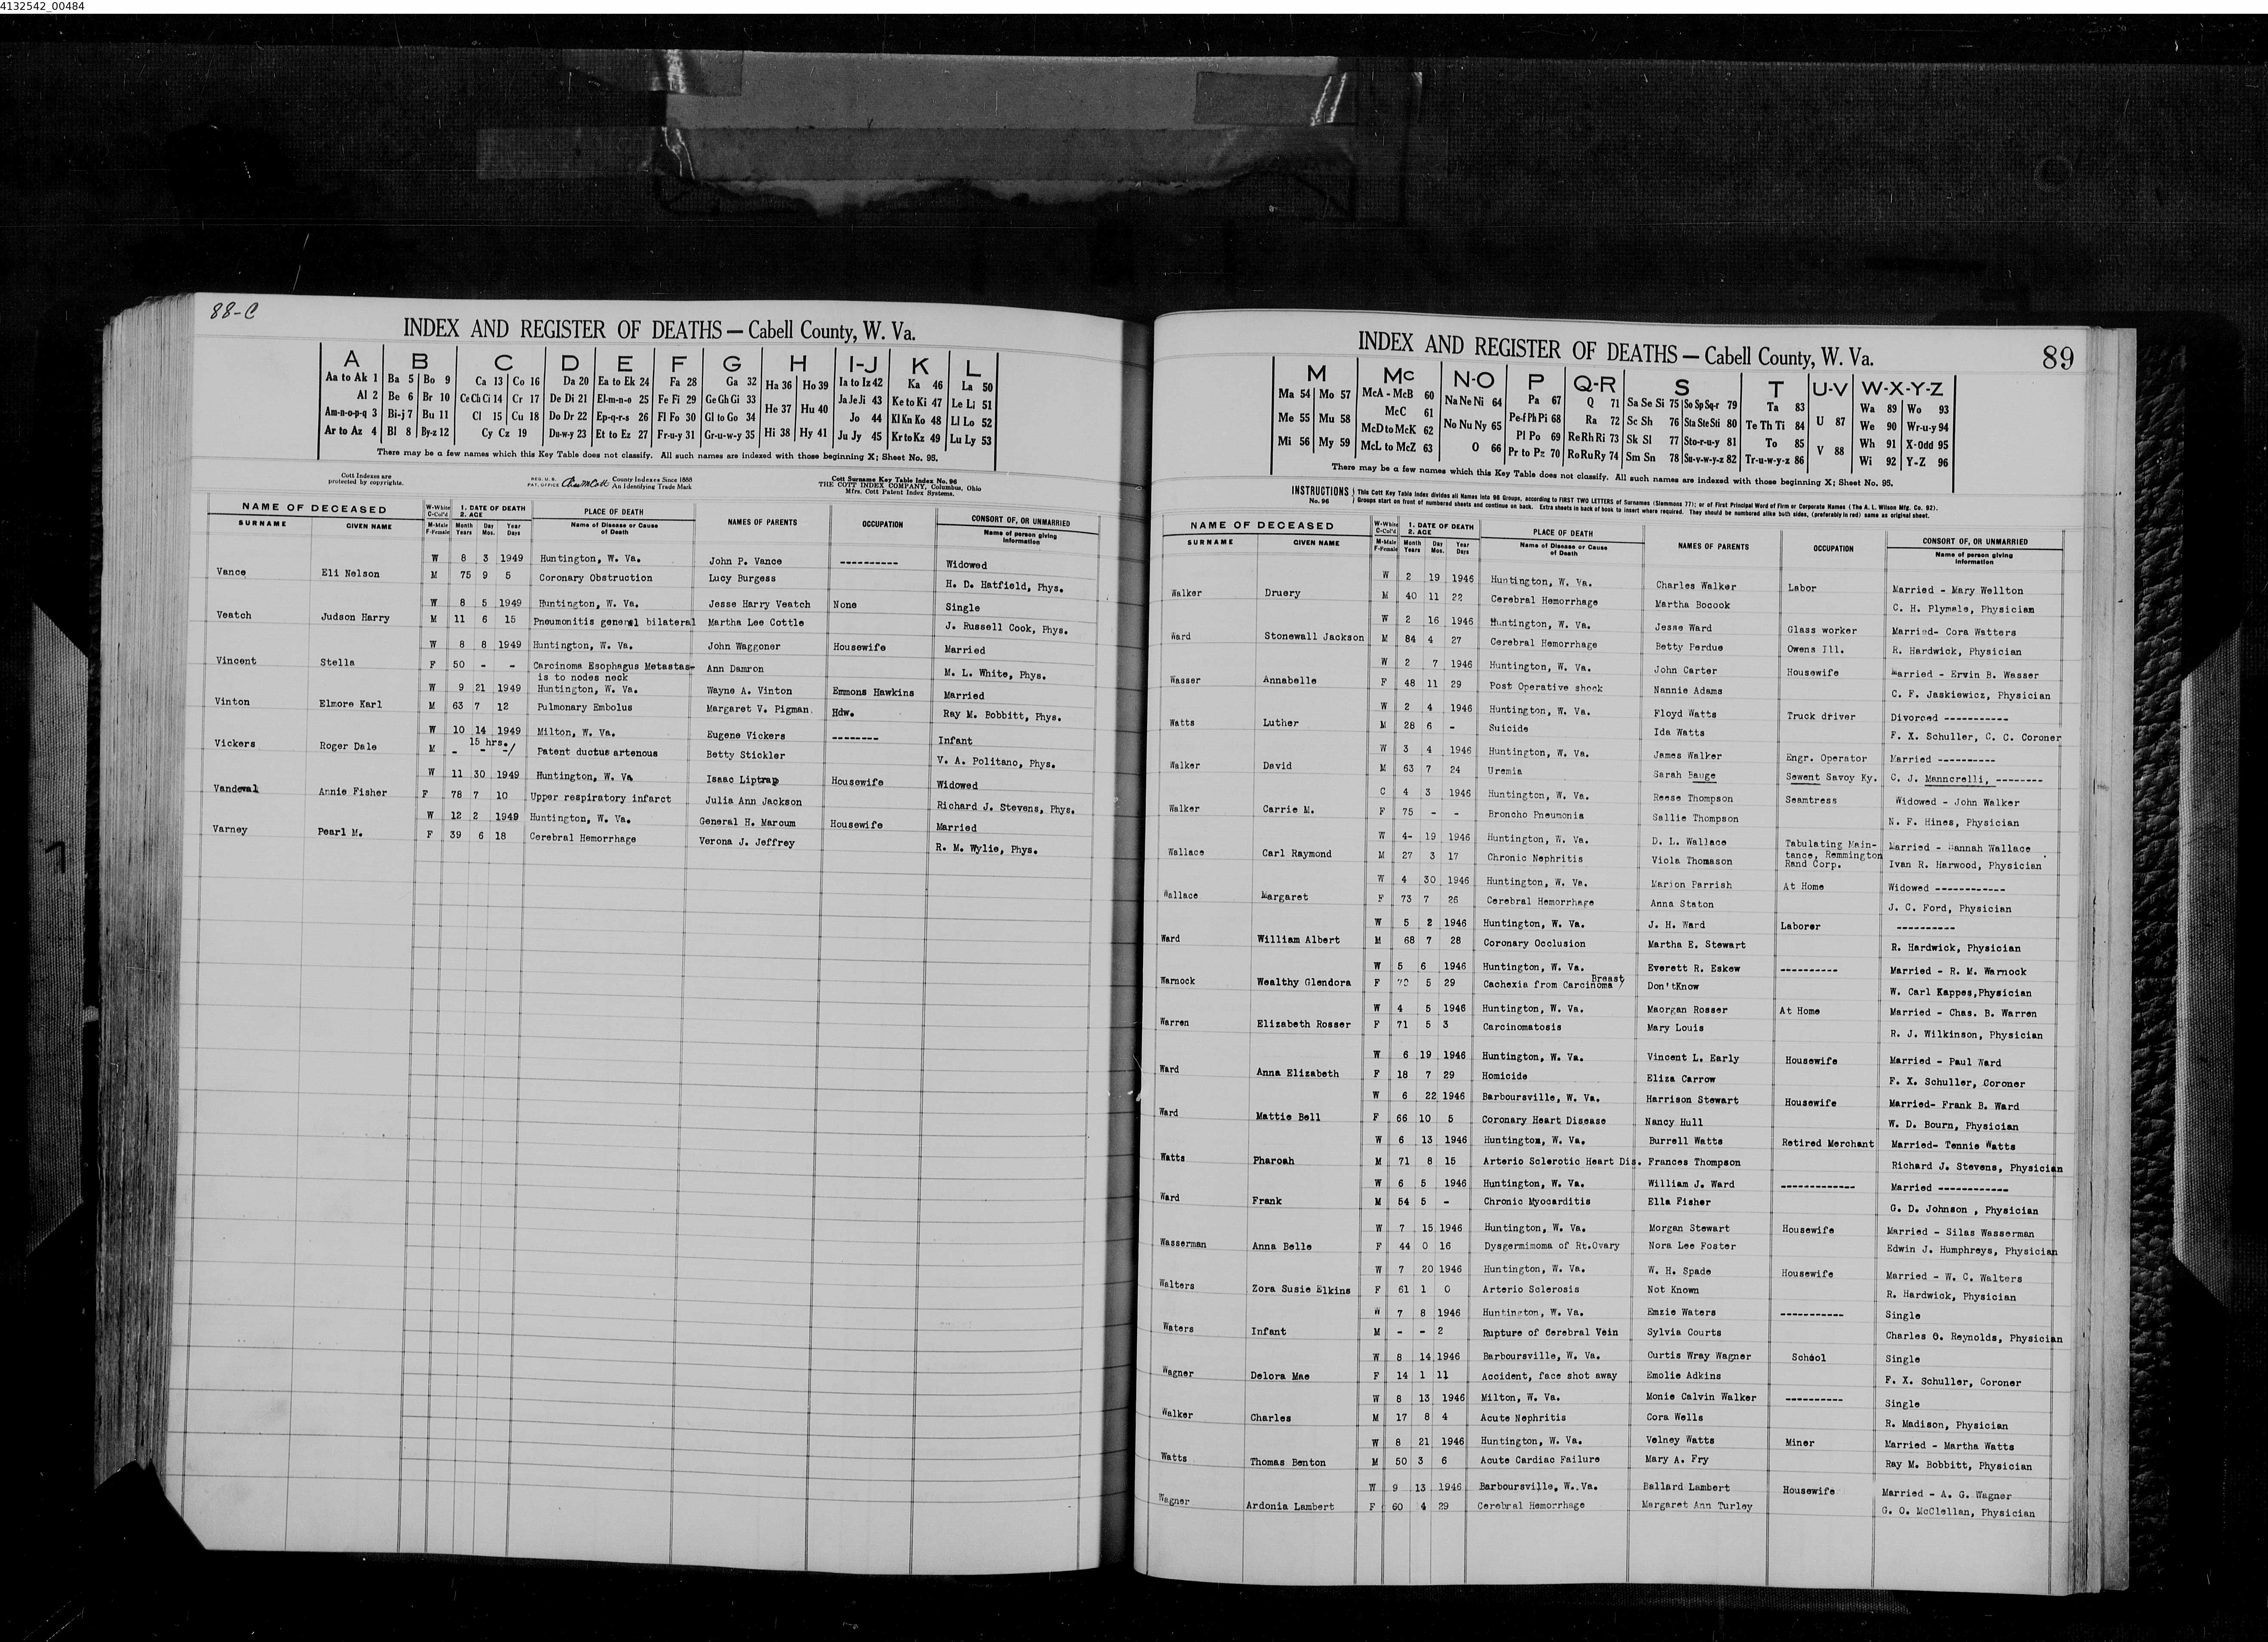 4132542_00484
88-C
INDEX AND REGISTER OF DEATHS — Cabell County, W. Va.
A B C D E F G H I-J K L
Aa to Ak 1 Ba 5 Bo 9 Ca 13 Co 16 Da 20 Ea to Ek 24 Fa 28 Ga 32 Ha 36 Ho 39 Ia to Iz 42 Ka 46 La 50
Al 2 Be 6 Br 10 Ce Ch Ci 14 Cr 17 De Di 21 El-m-n-o 25 Fe Fi 29 Ge Gh Gi 33 He 37 Hu 40 Ja Je Ji 43 Ke to Ki 47 Le Li 51
Am-n-o-p-q 3 Bi-j 7 Bu 11 Cl 15 Cu 18 Do Dr 22 Ep-q-r-s 26 Fl Fo 30 Gl to Go 34 Jo 44 Kl Kn Ko 48 Ll Lo 52
Ar to Az 4 Bl 8 By-z 12 Cy Cz 19 Du-w-y 23 Et to Ez 27 Fr-u-y 31 Gr-u-w-y 35 Hi 38 Hy 41 Ju Jy 45 Kr to Kz 49 Lu Ly 53
There may be a few names which this Key Table does not classify. All such names are indexed with those beginning X; Sheet No. 95.
Cott Indexes are protected by copyrights.
REG. U. S. PAT. OFFICE County Indexes Since 1888 An Identifying Trade Mark
Cott Surname Key Table Index No. 96
THE COTT INDEX COMPANY, Columbus, Ohio
Mfrs. Cott Patent Index Systems.
NAME OF DECEASED W-White C-Col'd 1. DATE OF DEATH 2. AGE PLACE OF DEATH NAMES OF PARENTS OCCUPATION CONSORT OF, OR UNMARRIED
SURNAME GIVEN NAME M-Male F-Female Month Years Day Mos. Year Days Name of Disease or Cause of Death Name of person giving information
W 8 3 1949 Huntington, W. Va. John P. Vance ---------- Widowed
Vance Eli Nelson M 75 9 5 Coronary Obstruction Lucy Burgess H. D. Hatfield, Phys.
W 8 5 1949 Huntington, W. Va. Jesse Harry Veatch None Single
Veatch Judson Harry M 11 6 15 Pneumonitis general bilateral Martha Lee Cottle J. Russell Cook, Phys.
W 8 8 1949 Huntington, W. Va. John Waggoner Housewife Married
Vincent Stella F 50 - - Carcinoma Esophagus Metastas- Ann Damron M. L. White, Phys.
is to nodes neck
W 9 21 1949 Huntington, W. Va. Wayne A. Vinton Emmons Hawkins Married
Vinton Elmore Karl M 63 7 12 Pulmonary Embolus Margaret V. Pigman Hdw. Ray M. Bobbitt, Phys.
W 10 14 1949 Milton, W. Va. Eugene Vickers -------- Infant
15 hrs.
Vickers Roger Dale M - - -/ Patent ductus artenous Betty Stickler V. A. Politano, Phys.
W 11 30 1949 Huntington, W. Va Isaac Liptrap Housewife Widowed
Vandeval Annie Fisher F 78 7 10 Upper respiratory infarct Julia Ann Jackson Richard J. Stevens, Phys.
W 12 2 1949 Huntington, W. Va. General H. Marcum Housewife Married
Varney Pearl M. F 39 6 18 Cerebral Hemorrhage Verona J. Jeffrey R. M. Wylie, Phys.
INDEX AND REGISTER OF DEATHS — Cabell County, W. Va. 89
M Mc N-O P Q-R S T U-V W-X-Y-Z
Ma 54 Mo 57 McA - McB 60 Na Ne Ni 64 Pa 67 Q 71 Sa Se Si 75 So Sp Sq-r 79 Ta 83 U 87 Wa 89 Wo 93
Me 55 Mu 58 McC 61 No Nu Ny 65 Pe-f Ph Pi 68 Ra 72 Sc Sh 76 Sta Ste Sti 80 Te Th Ti 84 We 90 Wr-u-y 94
McD to McK 62 Pl Po 69 Re Rh Ri 73 Sk Sl 77 Sto-r-u-y 81 To 85 V 88 Wh 91 X-Odd 95
Mi 56 My 59 McL to McZ 63 O 66 Pr to Pz 70 Ro Ru Ry 74 Sm Sn 78 Su-v-w-y-z 82 Tr-u-w-y-z 86 Wi 92 Y-Z 96
There may be a few names which this Key Table does not classify. All such names are indexed with those beginning X; Sheet No. 95.
INSTRUCTIONS No. 96 This Cott Key Table Index divides all Names into 96 Groups, according to FIRST TWO LETTERS of Surnames (Slemmons 77); or of First Principal Word of Firm or Corporate Names (The A. L. Wilson Mfg. Co. 92).
Groups start on front of numbered sheets and continue on back. Extra sheets in back of book to insert where required. They should be numbered alike both sides, (preferably in red) same as original sheet.
NAME OF DECEASED W-White C-Col'd 1. DATE OF DEATH 2. AGE PLACE OF DEATH NAMES OF PARENTS OCCUPATION CONSORT OF, OR UNMARRIED
SURNAME GIVEN NAME M-Male F-Female Month Years Day Mos. Year Days Name of Disease or Cause of Death Name of person giving information
W 2 19 1946 Huntington, W. Va. Charles Walker Labor Married - Mary Wellton
Walker Druery M 40 11 22 Cerebral Hemorrhage Martha Bocook C. H. Plymale, Physician
W 2 16 1946 Huntington, W. Va. Jesse Ward Glass worker Married- Cora Watters
Ward Stonewall Jackson M 84 4 27 Cerebral Hemorrhage Betty Perdue Owens Ill. R. Hardwick, Physician
W 2 7 1946 Huntington, W. Va. John Carter Housewife Married - Erwin B. Wasser
Wasser Annabelle F 48 11 29 Post Operative shock Nannie Adams C. F. Jaskiewicz, Physician
W 2 4 1946 Huntington, W. Va. Floyd Watts Truck driver Divorced -----------
Watts Luther M 28 6 - Suicide Ida Watts F. X. Schuller, C. C. Coroner
W 3 4 1946 Huntington, W. Va. James Walker Engr. Operator Married ----------
Walker David M 63 7 24 Uremia Sarah Bauge Sewent Savoy Ky. C. J. Manncrelli, --------
C 4 3 1946 Huntington, W. Va. Reese Thompson Seamtress Widowed - John Walker
Walker Carrie M. F 75 - - Broncho Pneumonia Sallie Thompson N. F. Hines, Physician
W 4- 19 1946 Huntington, W. Va. D. L. Wallace Tabulating Main- Married - Hannah Wallace
Wallace Carl Raymond M 27 3 17 Chronic Nephritis Viola Thomason tance, Remmington Rand Corp. Ivan R. Harwood, Physician
W 4 30 1946 Huntington, W. Va. Marion Parrish At Home Widowed ------------
Wallace Margaret F 73 7 26 Cerebral Hemorrhage Anna Staton J. C. Ford, Physician
W 5 2 1946 Huntington, W. Va. J. H. Ward Laborer ----------
Ward William Albert M 68 7 28 Coronary Occlusion Martha E. Stewart R. Hardwick, Physician
W 5 6 1946 Huntington, W. Va. Everett R. Eskew ---------- Married - R. M. Warnock
Breast
Warnock Wealthy Glendora F 5 29 Cachexia from Carcinoma/ Don'tKnow W. Carl Kappes,Physician
W 4 5 1946 Huntington, W. Va. Maorgan Rosser At Home Married - Chas. B. Warren
Warren Elizabeth Rosser F 71 5 3 Carcinomatosis Mary Louis R. J. Wilkinson, Physician
W 6 19 1946 Huntington, W. Va. Vincent L. Early Housewife Married - Paul Ward
Ward Anna Elizabeth F 18 7 29 Homicide Eliza Carrow F. X. Schuller, Coroner
W 6 22 1946 Barboursville, W. Va. Harrison Stewart Housewife Married- Frank B. Ward
Ward Mattie Bell F 66 10 5 Coronary Heart Disease Nancy Hull W. D. Bourn, Physician
W 6 13 1946 Huntington, W. Va. Burrell Watts Retired Merchant Married- Tennie Watts
Watts Pharoah M 71 8 15 Arterio Sclerotic Heart Dis. Frances Thompson Richard J. Stevens, Physician
W 6 5 1946 Huntington, W. Va. William J. Ward ------------- Married ------------
Ward Frank M 54 5 - Chronic Myocarditis Ella Fisher G. D. Johnson , Physician
W 7 15 1946 Huntington, W. Va. Morgan Stewart Housewife Married - Silas Wasserman
Wasserman Anna Belle F 44 0 16 Dysgermimoma of Rt.Ovary Nora Lee Foster Edwin J. Humphreys, Physician
W 7 20 1946 Huntington, W. Va. W. H. Spade Housewife Married - W. C. Walters
Walters Zora Susie Elkins F 61 1 0 Arterio Sclerosis Not Known R. Hardwick, Physician
W 7 8 1946 Huntington, W. Va. Emzie Waters ----------- Single
Waters Infant M - - 2 Rupture of Cerebral Vein Sylvia Courts Charles O. Reynolds, Physician
W 8 14 1946 Barboursville, W. Va. Curtis Wray Wagner School Single
Wagner Delora Mae F 14 1 11 Accident, face shot away Emolie Adkins F. X. Schuller, Coroner
W 8 13 1946 Milton, W. Va. Monie Calvin Walker ---------- Single
Walker Charles M 17 8 4 Acute Nephritis Cora Wells R. Madison, Physician
W 8 21 1946 Huntington, W. Va. Velney Watts Miner Married - Martha Watts
Watts Thomas Benton M 50 3 6 Acute Cardiac Failure Mary A. Fry Ray M. Bobbitt, Physician
W 9 13 1946 Barboursville, W. Va. Ballard Lambert Housewife Married - A. G. Wagner
Wagner Ardonia Lambert F 60 4 29 Cerebral Hemorrhage Margaret Ann Turley G. O. McClellan, Physician